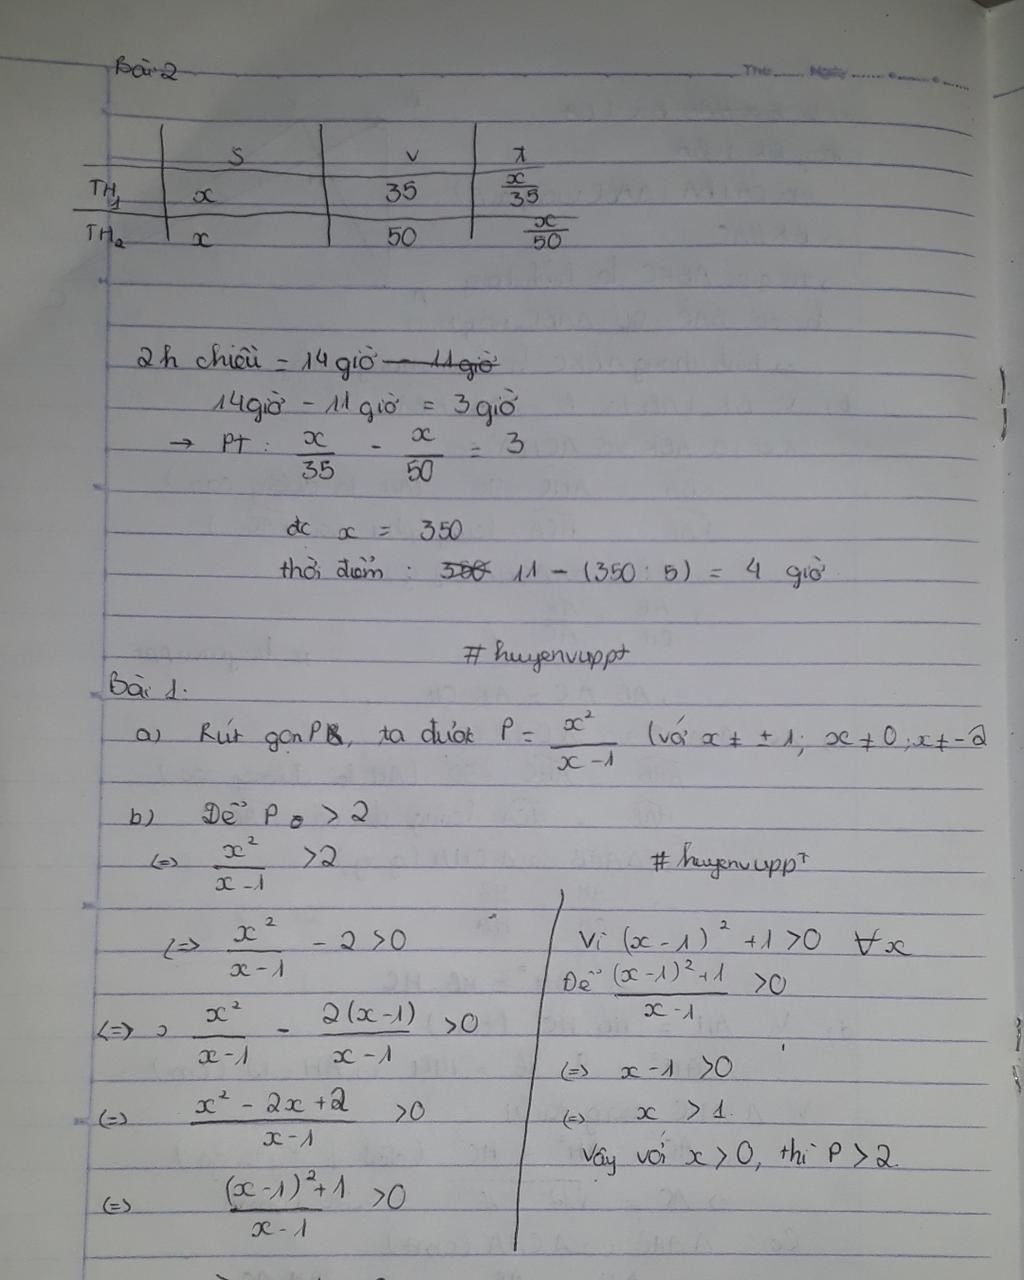 Bài 2
Thứ ...... Ngày ...... . ...... . ......
S v t
TH1 x 35 x/35
TH2 x 50 x/50
2h chiều = 14 giờ - 11 giờ
14 giờ - 11 giờ = 3 giờ
→ PT : x/35 - x/50 = 3
đc x = 350
thời điểm : 350 11 - (350 : 5) = 4 giờ
#huyenvuppt
Bài 1.
a) Rút gọn P, ta được P = x²/(x-1) (với x ≠ ±1; x ≠ 0; x ≠ -2
b) Để P > 2
(=) x²/(x-1) > 2
#huyenvuppt
(=) x²/(x-1) - 2 > 0
(=) x²/(x-1) - 2(x-1)/(x-1) > 0
(=) (x² - 2x + 2)/(x-1) > 0
(=) ((x-1)² + 1)/(x-1) > 0
Vì (x-1)² + 1 > 0 ∀x
Để ((x-1)² + 1)/(x-1) > 0
(=) x - 1 > 0
(=) x > 1.
Vậy với x > 0, thì P > 2.